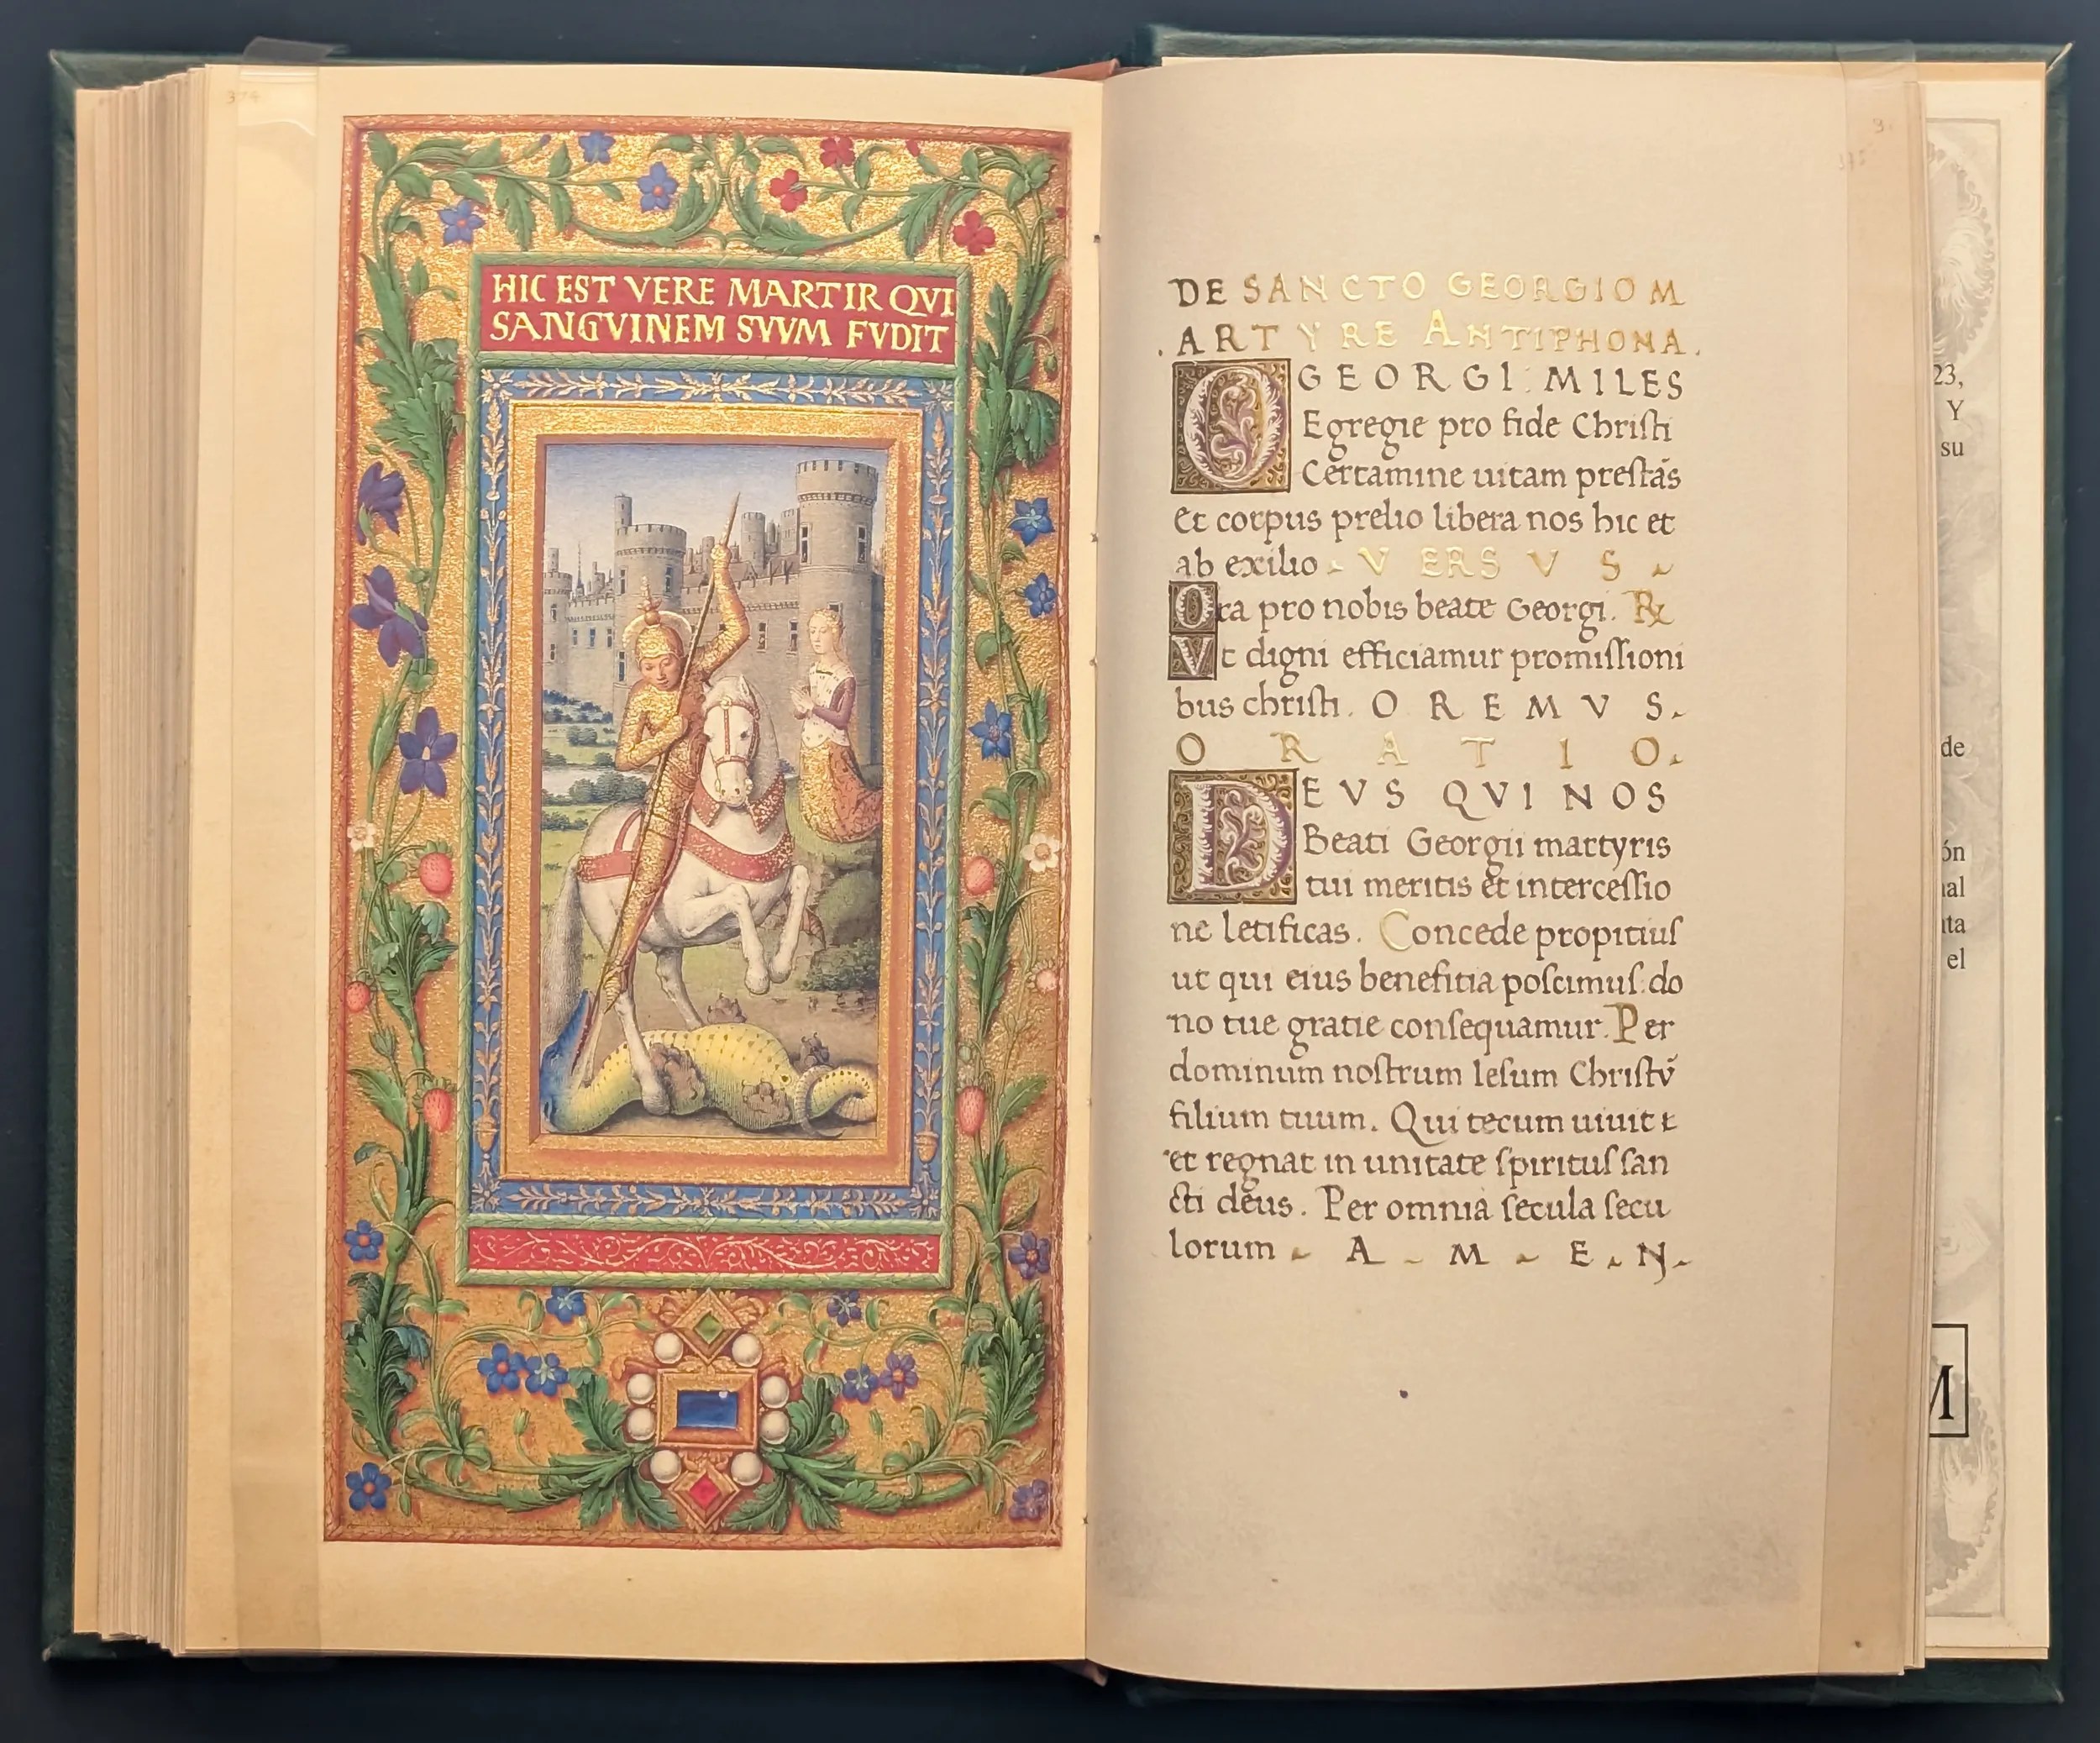 374
HIC EST VERE MARTIR QVI
SANGVINEM SVVM FVDIT
DE SANCTO GEORGIO M
.ARTYRE ANTIPHONA.
O GEORGI: MILES
Egregie pro fide Chriſti
Certamine uitam preſtãs
et corpus prelio libera nos hic et
ab exilio. VERSVS.
Ora pro nobis beate Georgi. ℞
Vt digni efficiamur promiſſioni
bus chriſti. OREMVS.
ORATIO.
DEVS QVI NOS
Beati Georgii martyris
tui meritis et interceſſio
ne letificas. Concede propitiuſ
ut qui eius benefitia poſcimuſ: do
no tue gratie conſequamur. Per
dominum noſtrum Ieſum Chriſtv̄
filium tuum. Qui tecum uiuit &
et regnat in unitate ſpirituſ ſan
cti deus. Per omnia ſecula ſecu
lorum. A.M.E.N.
23,
Y
su
de
ón
nal
nta
el
M